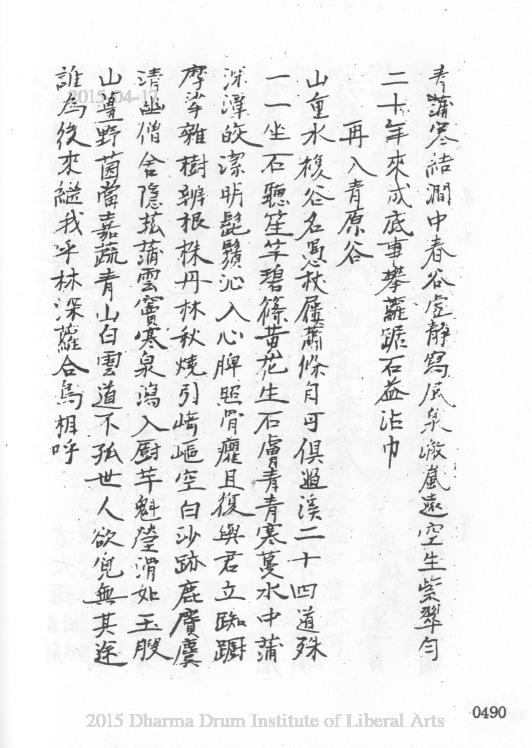 青蒲寒結澗中春谷空靜寫風泉激嵐遠空生紫翠勻
二十年來成底事攀蘿踞石益沾巾
再入青原谷
山重水複谷名愚秋屐蕭條自可俱過溪二十四道殊
一一坐石聽笙竽碧篠黃花生石膚青青寒蔓水中蒲
深潭皎潔明髭鬚沁入心脾照骨癯且復與君立踟躕
摩挲雜樹辨根株丹林秋燒引崎嶇空白沙跡鹿麏麌
清幽僧舍隱菰蒲雲竇寒泉瀉入廚芋魁瑩滑如玉腴
山邊野茵當嘉蔬青山白雲道不孤世人欲覓無其途
誰為後來繼我呼林深蘿合鳥相呼
2015/04/17
0490
2015 Dharma Drum Institute of Liberal Arts